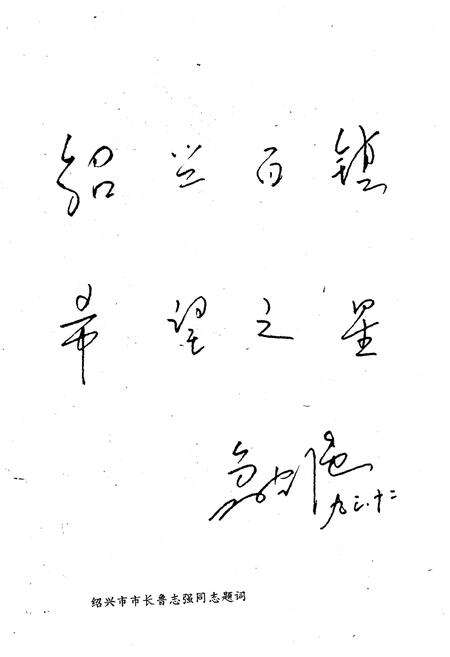 绍兴百镇
希望之星
鲁志强
九三.十二
绍兴市市长鲁志强同志题词